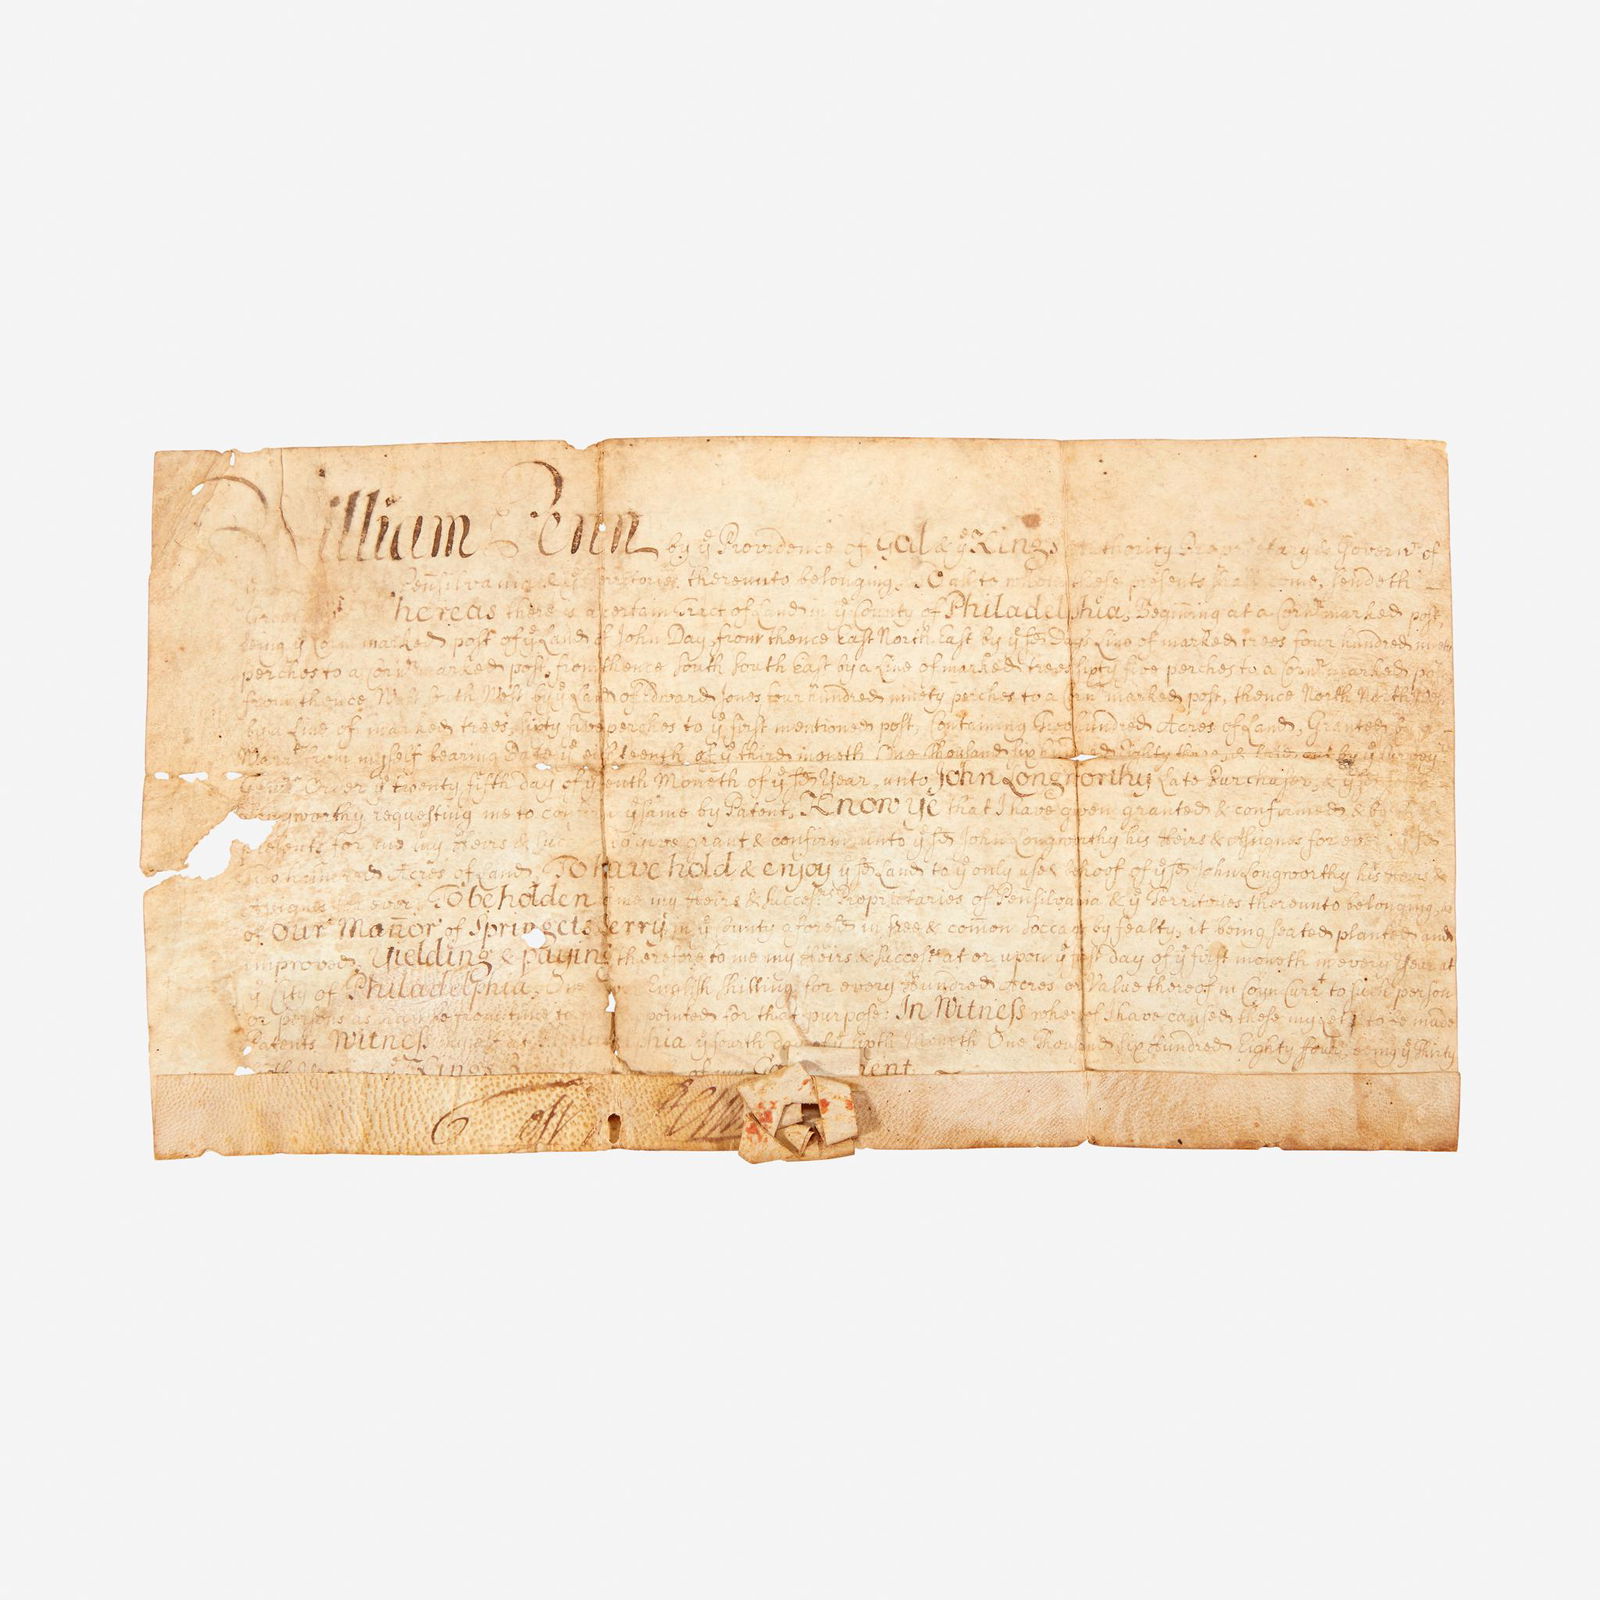 William Penn by yͤ Providence of God & yͤ Kings Authority Proprietary & Governʳ of
Pensilvania & yͤ Territories thereunto belonging, To all to whom these presents shall come, sendeth
Whereas there is a certain Tract of Land in yͤ County of Philadelphia, Begining at a Cornʳ marked post,
being yͤ Corn marked post of yͤ Land of John Day, from thence East North East by yͤ sᵈ Days Line of marked trees four hundred ninety
perches to a Cornʳ marked post, from thence South South East by a Line of marked trees sixty five perches to a Cornʳ marked post
from thence West South West by yͤ Land of Edward Jones four hundred ninety perches to a Cornʳ marked post, thence North North West
by a Line of marked trees sixty five perches to yͤ first mentioned post, Containing Two hundred Acres of Land, Granted by a
Warrᵗ from myself bearing Date yͤ eighteenth of yͤ third moneth One thousand six hundred Eighty three, & by yͤ Survey
Genˡˢ Order yͤ twenty fifth day of yͤ Moneth of yͤ sᵈ Year, unto John Longworthy Late Purchaser, & yͤ sᵈ
Longworthy requesting me to confirm yͤ same by Patent, Know yͤ that I have given granted & confirmed & by
presents for me my Heirs & Succ do give grant & confirm unto yͤ sᵈ John Longworthy his Heirs & Assignes for ever yͤ sᵈ
two hundred Acres of Land, To have hold & enjoy yͤ sᵈ Land to yͤ only use & behoof of yͤ sᵈ John Longworthy his Heirs &
Assignes for ever, To be holden of me my Heirs & Successʳˢ Proprietaries of Pensilvania & yͤ Territories thereunto belonging, as
of Our Mañor of Springetsberry in yͤ County aforesᵈ in free & comon Soccage by fealty, it being seated planted and
improved, Yielding & paying therefore to me my Heirs & Successʳˢ at or upon yͤ first day of yͤ first moneth in every Year at
yͤ City of Philadelphia, One English Shilling for every Hundred Acres or Value thereof in Coyn Currᵗ to such person
or persons as may be from time to time appointed for that purpose: In Witness whereof I have caused these my Letʳˢ to be made
Patents Witness myself at Philadelphia yͤ fourth day of yͤ sixth Moneth One Thousand Six Hundred Eighty four, being yͤ Thirty
Year of yͤ Kings of my Government